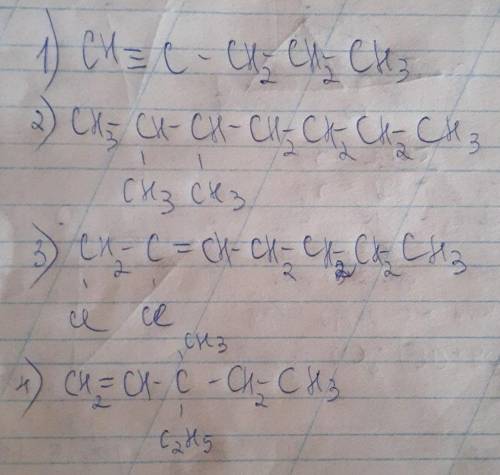 1) CH≡C-CH2-CH2-CH3
2) CH3-CH-CH-CH2-CH2-CH2-CH3
CH3 CH3
3) CH2-C=CH-CH2-CH2-CH2-CH3
Cl Cl
CH3
4) CH2=CH-C-CH2-CH3
C2H5